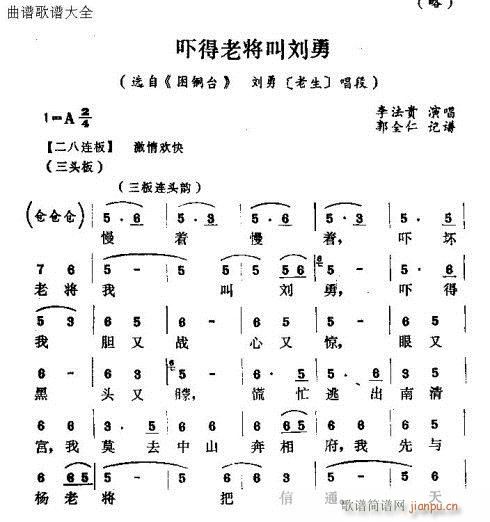 (略)
曲谱歌谱大全
吓得老将叫刘勇
(选自《困铜台》 刘勇〔老生〕唱段)
1=A 2/4
李法贵 演唱
郭全仁 记谱
【二八连板】 激情欢快
(三头板)
(三板连头韵)
(仓仓仓) | 5 · 6 | 5 · 3 | 5 · 6 | 5 · 3 | 6 · 5 |
慢 着 慢 着, 吓 坏
7 6 | 5 - | 5 5 | 5 5 6 | 5 - | 6 5 |
老 将 我 叫 刘 勇, 吓 得
5 3 | 6 · 5 | 6 - | 6 · 5 | 6 - | 6 · 5 |
我 胆 又 战 心 又 惊, 眼 又
黑 头 又 曚, 慌 忙 逃 出 南 清
宫, 我 莫 去 中 山 奔 相 府, 我 先 与
杨 老 将 把 信 通, 天
歌谱简谱网
jianpu.cn